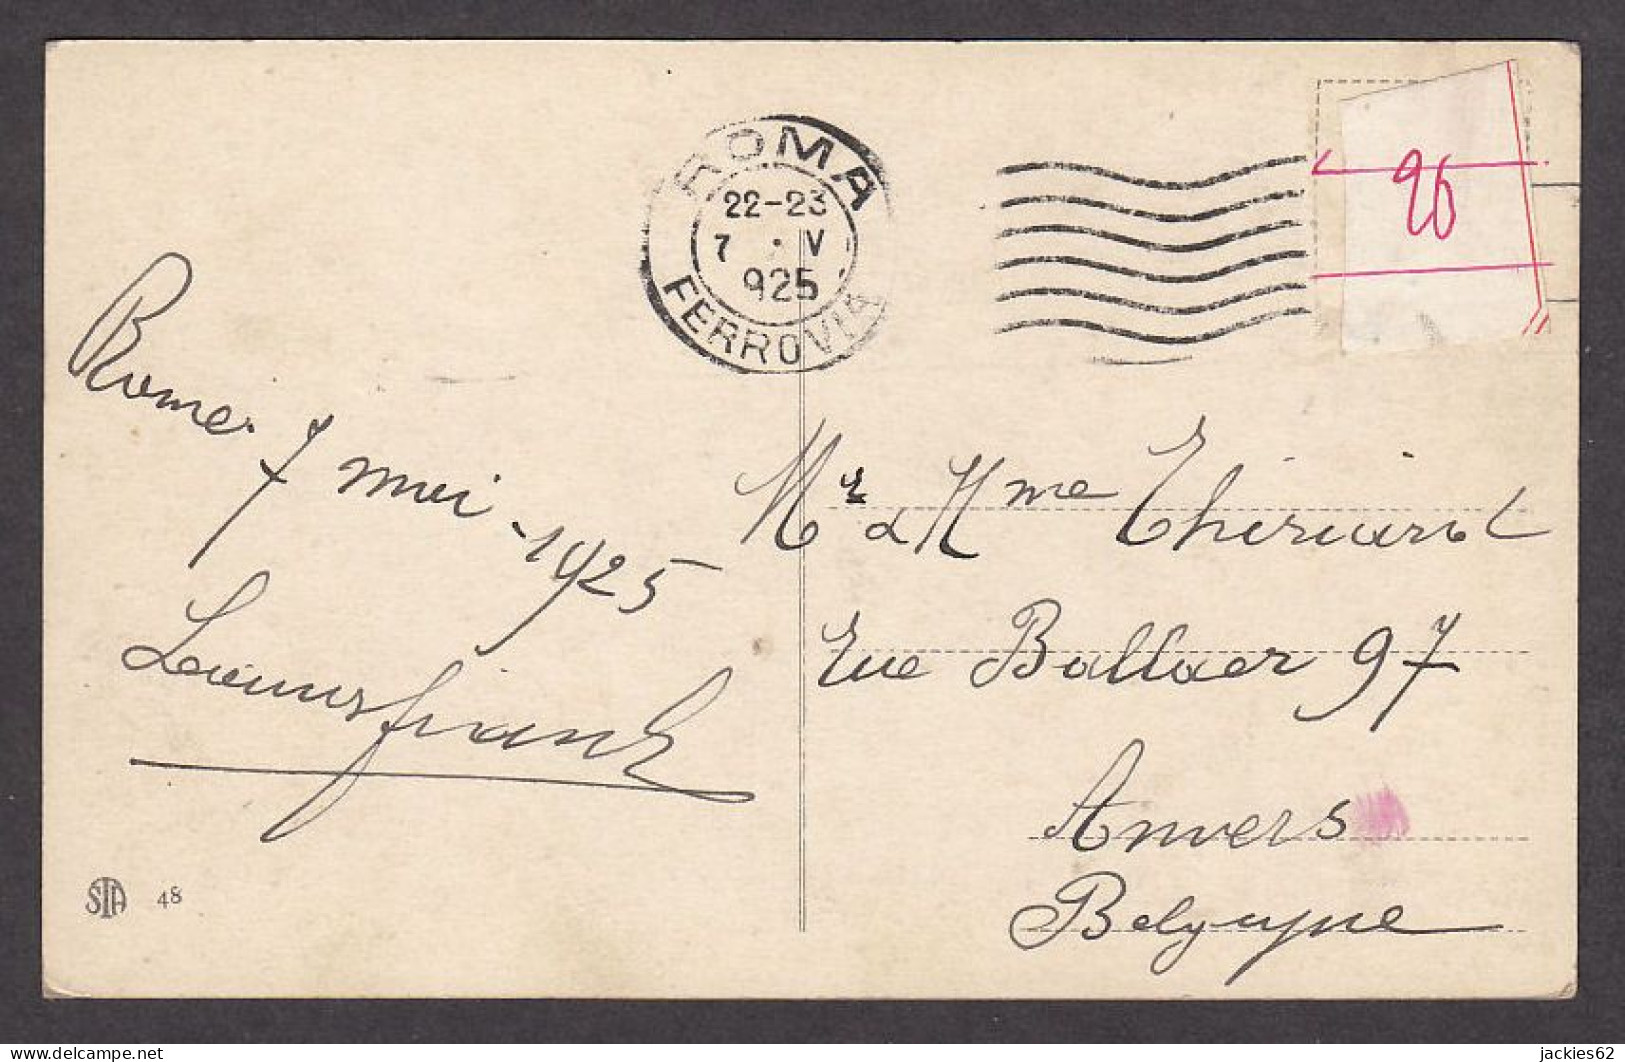 ROMA
22-23
7 · V
925
FERROVIA
26
Rome 7 mai - 1925
Mr & Mme Thiriard
Rue Ballaer 97
Anvers
Belgique
STA 48
delcampe.net
jackies62